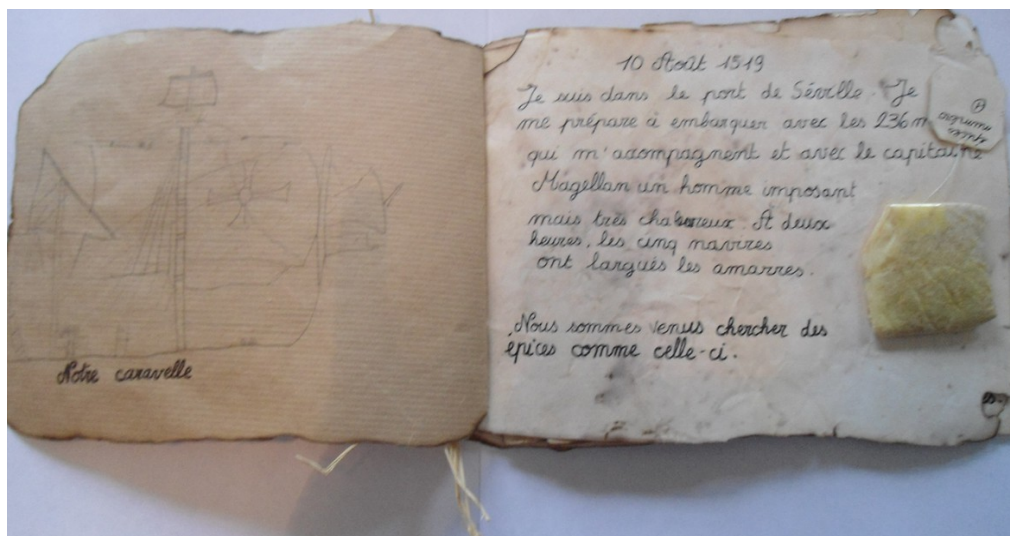 Notre caravelle
10 Août 1519
Je suis dans le port de Séville. Je
me prépare à embarquer avec les 236 m
qui m'acompagnent et avec le capitaine
Magellan un homme imposant
mais très chaleureux. A deux
heures, les cinq navires
ont largués les amarres.
Nous sommes venus chercher des
épices comme celle-ci.